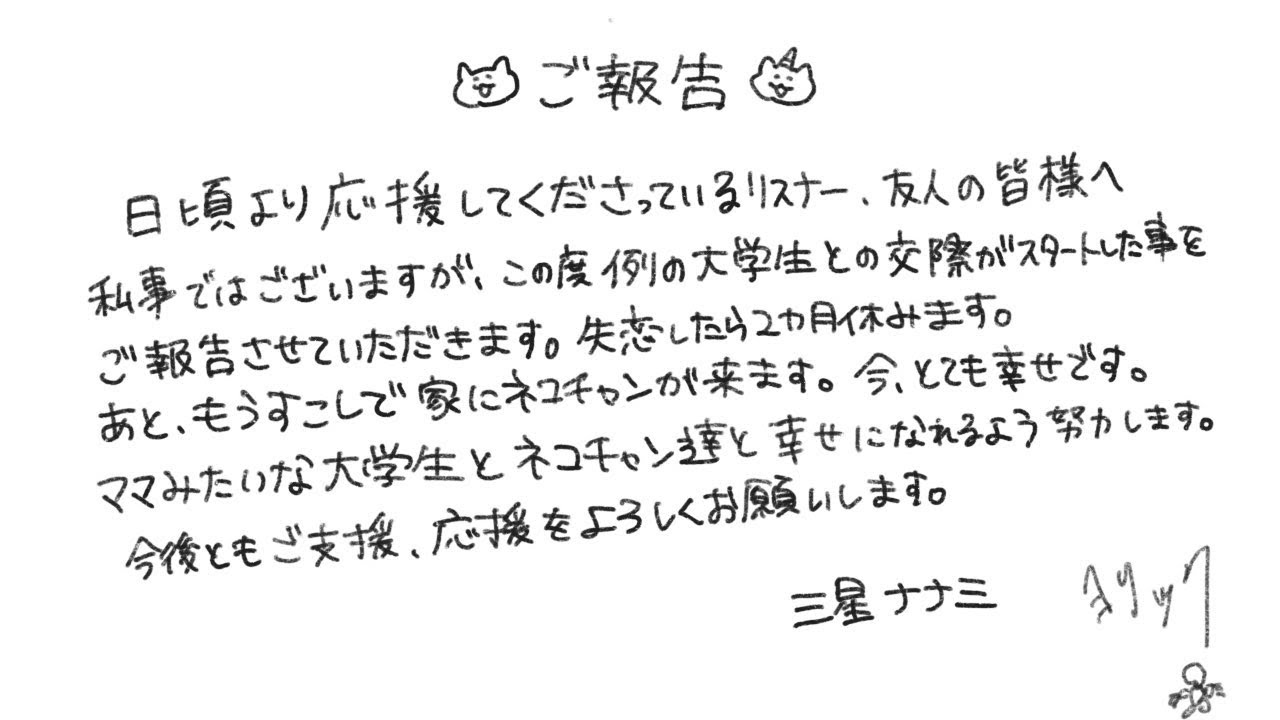 ご報告
日頃より応援してくださっているリスナー、友人の皆様へ
私事ではございますが、この度例の大学生との交際がスタートした事を
ご報告させていただきます。失恋したら2カ月休みます。
あと、もうすこしで家にネコチャンが来ます。今、とても幸せです。
ママみたいな大学生とネコチャン達と幸せになれるよう努力します。
今後ともご支援、応援をよろしくお願いします。
三星ナナ三